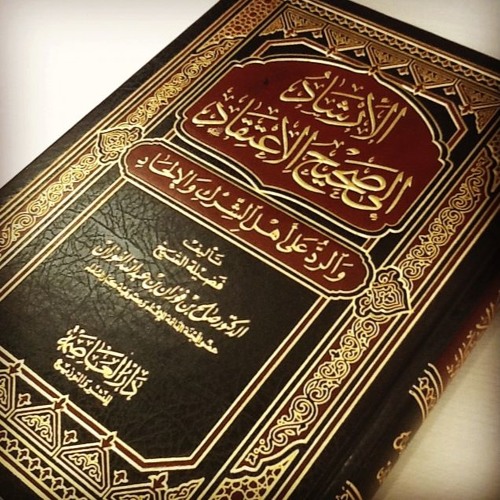 الإرشاد
إلى صحيح الاعتقاد
والرد على أهل الشرك والإلحاد
تأليف
فضيلة الشيخ
الدكتور صالح بن فوزان بن عبد الله الفوزان
دار العاصمة
للنشر والتوزيع